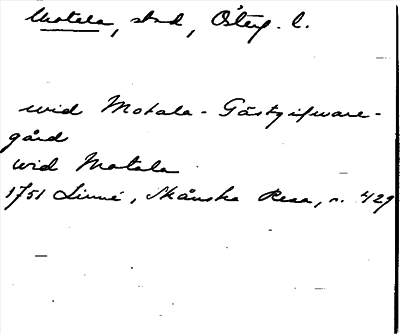 Motala, stad, Österg. l.
wid Motala-Gästgifware-
gård
wid Motala
1751 Linné, Skånska Resa, s. 429